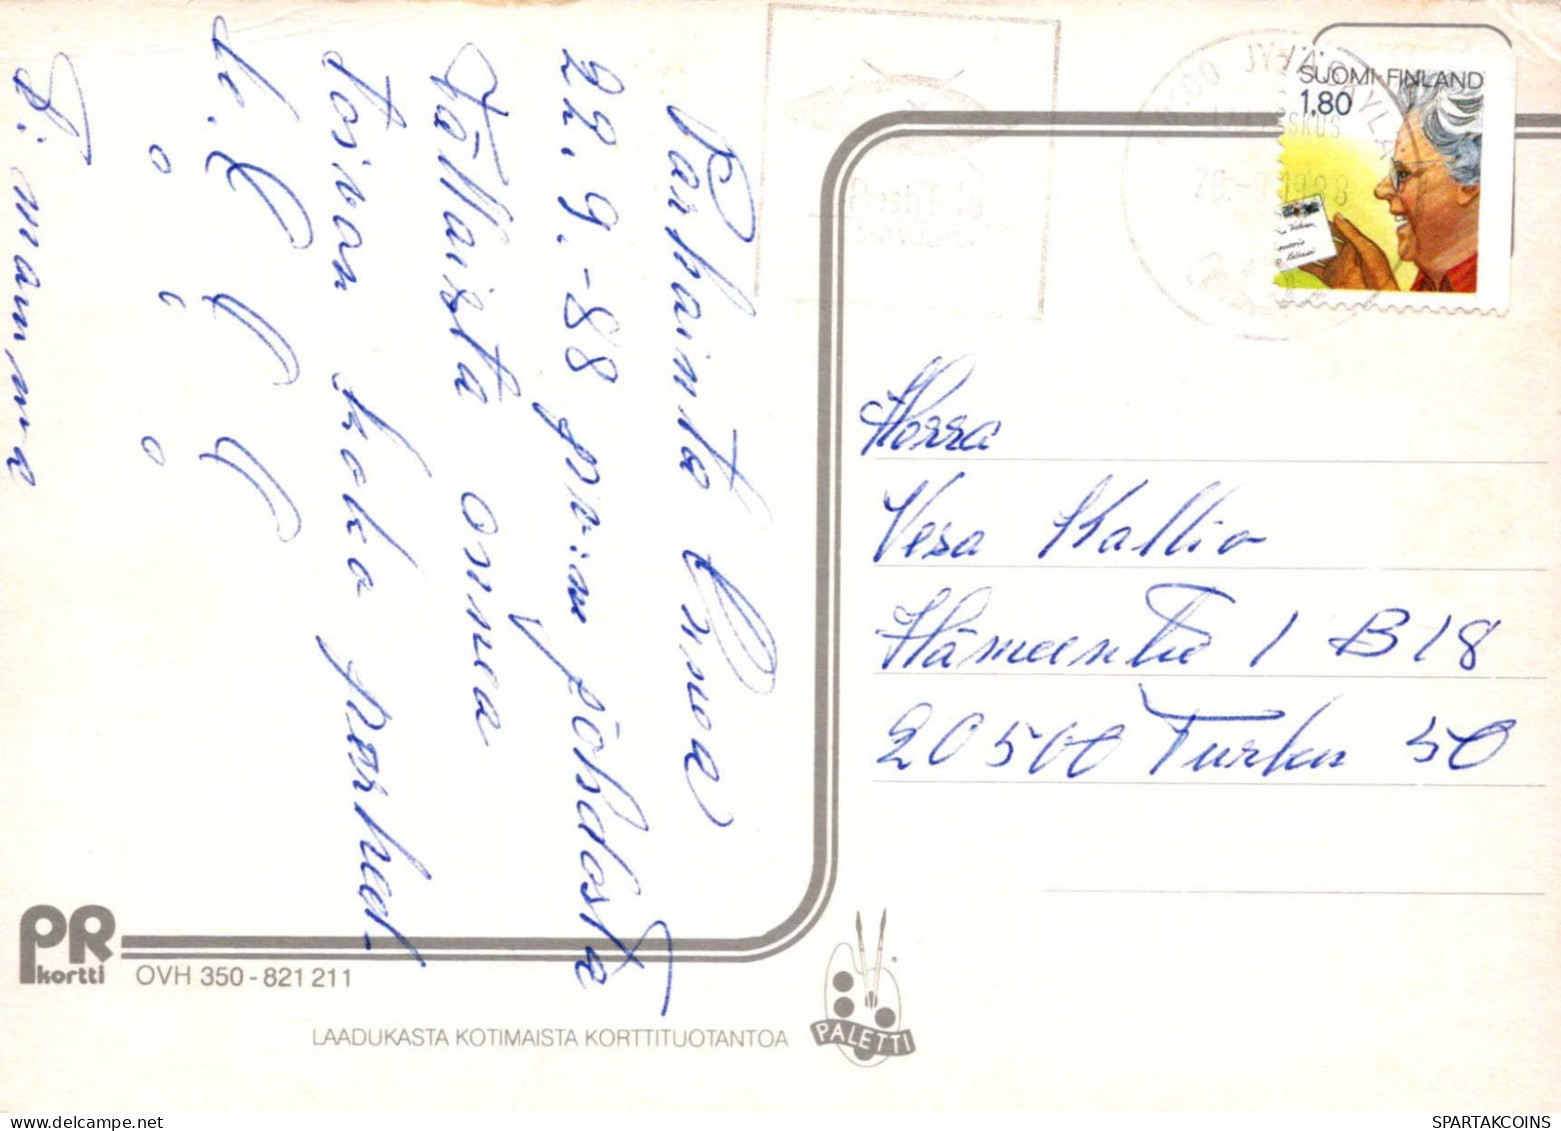 Parhainta Onnea
22.9.-88 pv:n johdosta
Tällaista osinea
tosivan koko perheel-
le. !!!
T: mamma
SUOMI-FINLAND
1,80
JYVÄSKYLÄ
20.-9.1988
Herra
Vesa Kallio
Hämeentie 1 B 18
20500 Turku 50
PR
kortti
OVH 350-821 211
LAADUKASTA KOTIMAISTA KORTTITUOTANTOA
PALETTI
SPARTAKCOINS